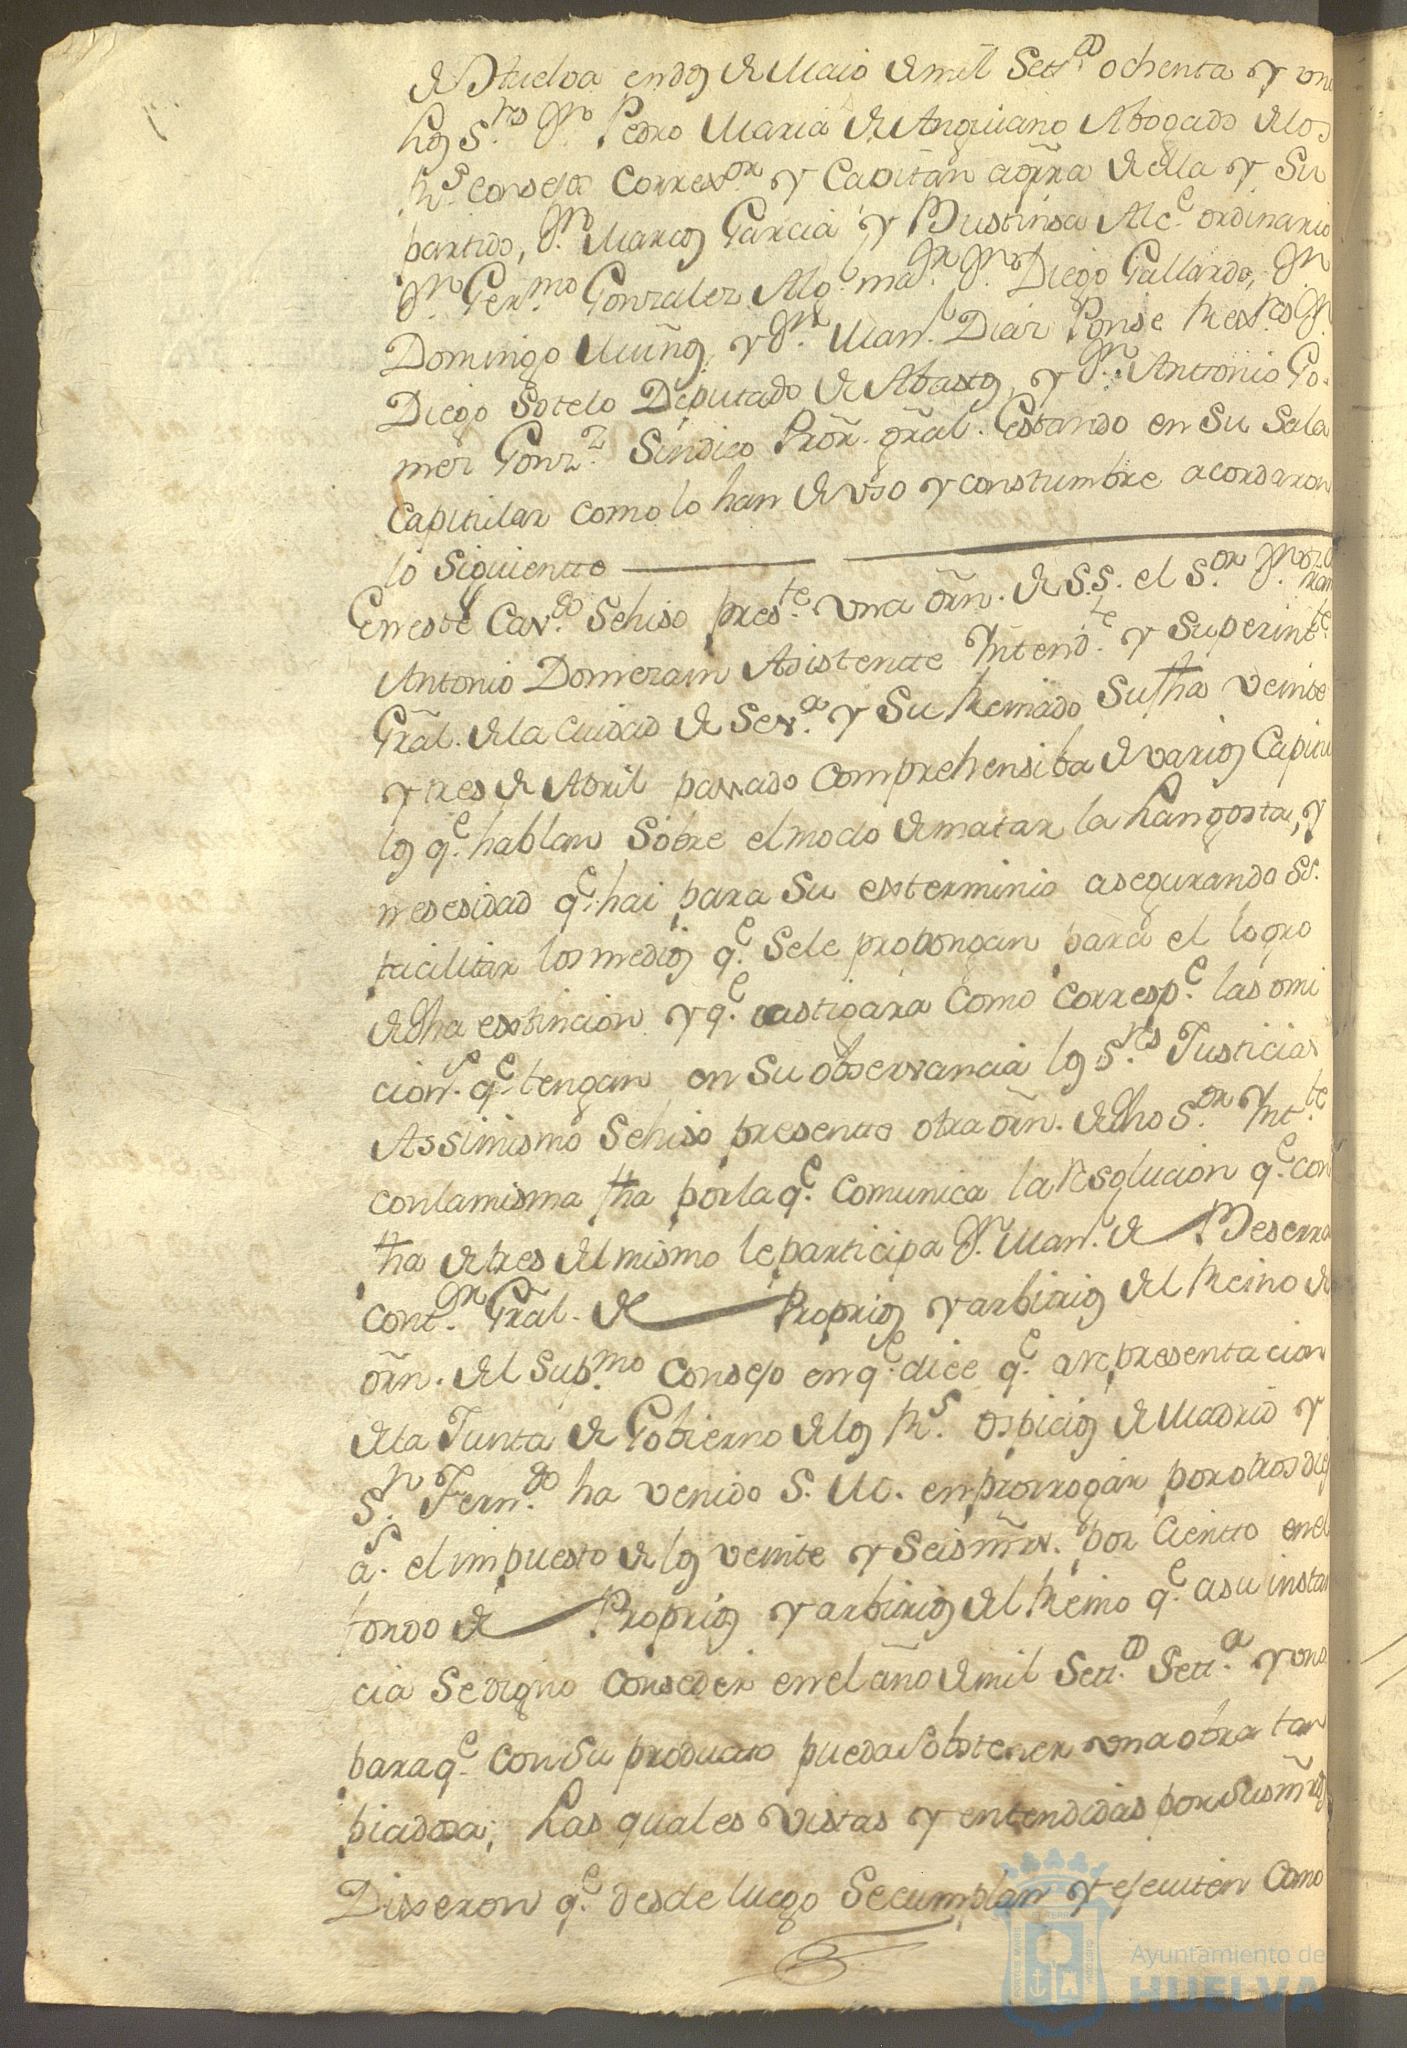 de Huelva en dos de Maio de mil Settos ochenta y un
los S.res Dn Pedro Maria de Anguiano Abogado de los
Rs Consejos Correxor y Capitan aGrra de ella y Su
partido, Dn Marcos Garcia y Bustinsa Alce ordinario
Dn Germo Gonzalez Algl maor Dn Diego Gallardo, Dn
Domingo Muñoz, y Dn Manl Diaz Ponse Rexres Dn
Diego Sotelo Deputado de Abastos, y Dn Antonio Go-
mez Gonzz Sindico Pror. gral. Estando en Su Sala
Capitular como lo han de vso y constumbre acordaron
lo Siguientte
En este Cavdo Sehiso preste vna orn. de S.S. el S.or Dn
Antonio Domezain Asistentte Yntendte y Superintte
Gral. de la Ciudad de Seva y Su Reinado Su fha veinte
y tres de Abril passado Comprehensiba de varios Capitu
los qe hablan Sobre el modo de matar la Langosta, y
nesesidad qe hai para Su exterminio asegurando SS.
facilitar los medios qe Sele propongan para el logro
de dha extincion y qe castigara Como Correspe las omi
cions qe tengan en Su observancia los S.res Justicias
Assimismo Sehiso presentte otra orn. de dho S.or Yntte
con la misma fha por la qe Comunica la resolucion qe con
fha de tres del mismo le participa Dn Manl de Beserra
Contor Gral. de Proprios y arbitrios del Reino de
orn. del Supmo Consejo en qe dice qe a representacion
de la Junta de Gobierno de los Rs Ospicios de Madrid y
Sn Ferndo ha venido S. M. en prorrogar por otros diez
as el impuesto de los veinte y Seis mrs. por Cientto en el
fondo de Proprios y arbitrios del Reino qe a su instan
cia Se digno Conseder en el año de mil Settos Setta y uno
para qe Con Su producto pueda Sobstener vna obra tan
piadosa; Las quales vistas y entendidas por Sus mrds
Dixeron qe desde luego Se cumplan y ejecuten Como
Ayuntamiento de
HUELVA